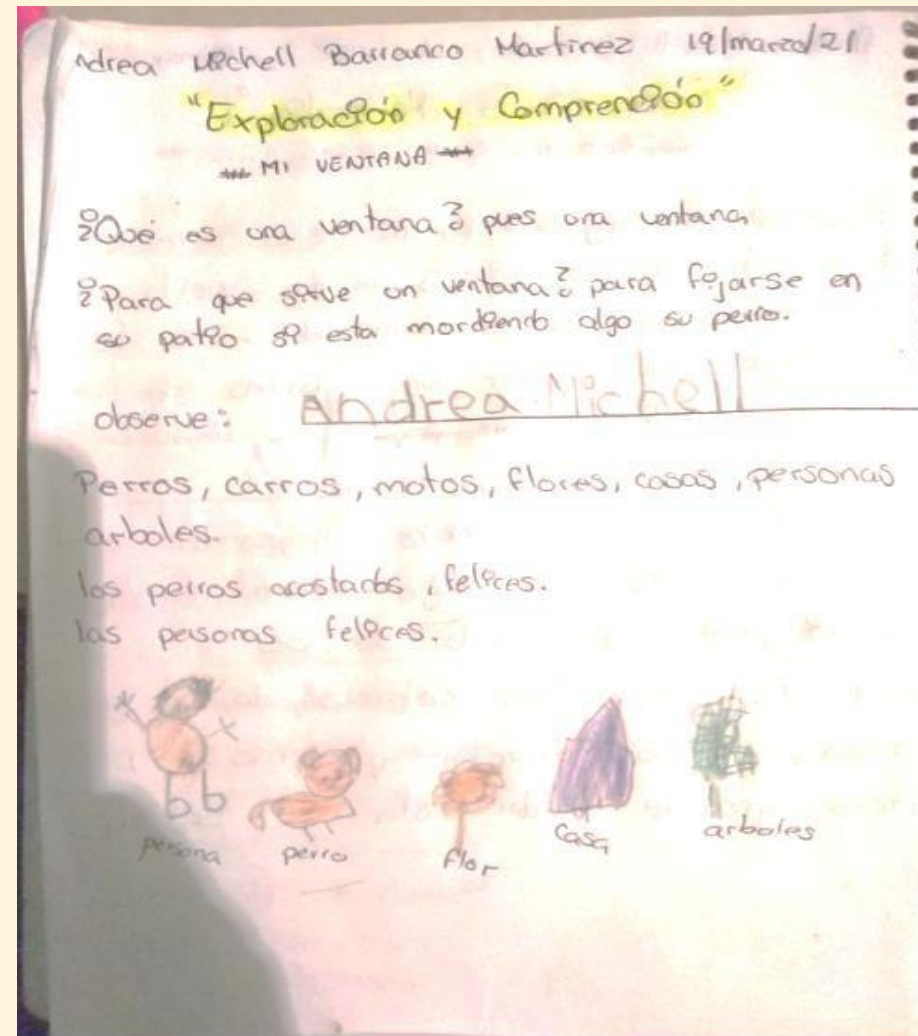 ndrea Michell Barranco Martinez 19/marzo/21
"Exploración y Comprención"
MI VENTANA
¿Qué es una ventana? pues una ventana
¿Para que sirve un ventana? para fijarse en
su patio si esta mordiendo algo su perro.
observe: Andrea Michell
Perros, carros, motos, flores, casas, personas
arboles.
los perros acostados, felices.
las personas felices.
persona perro flor casa arboles